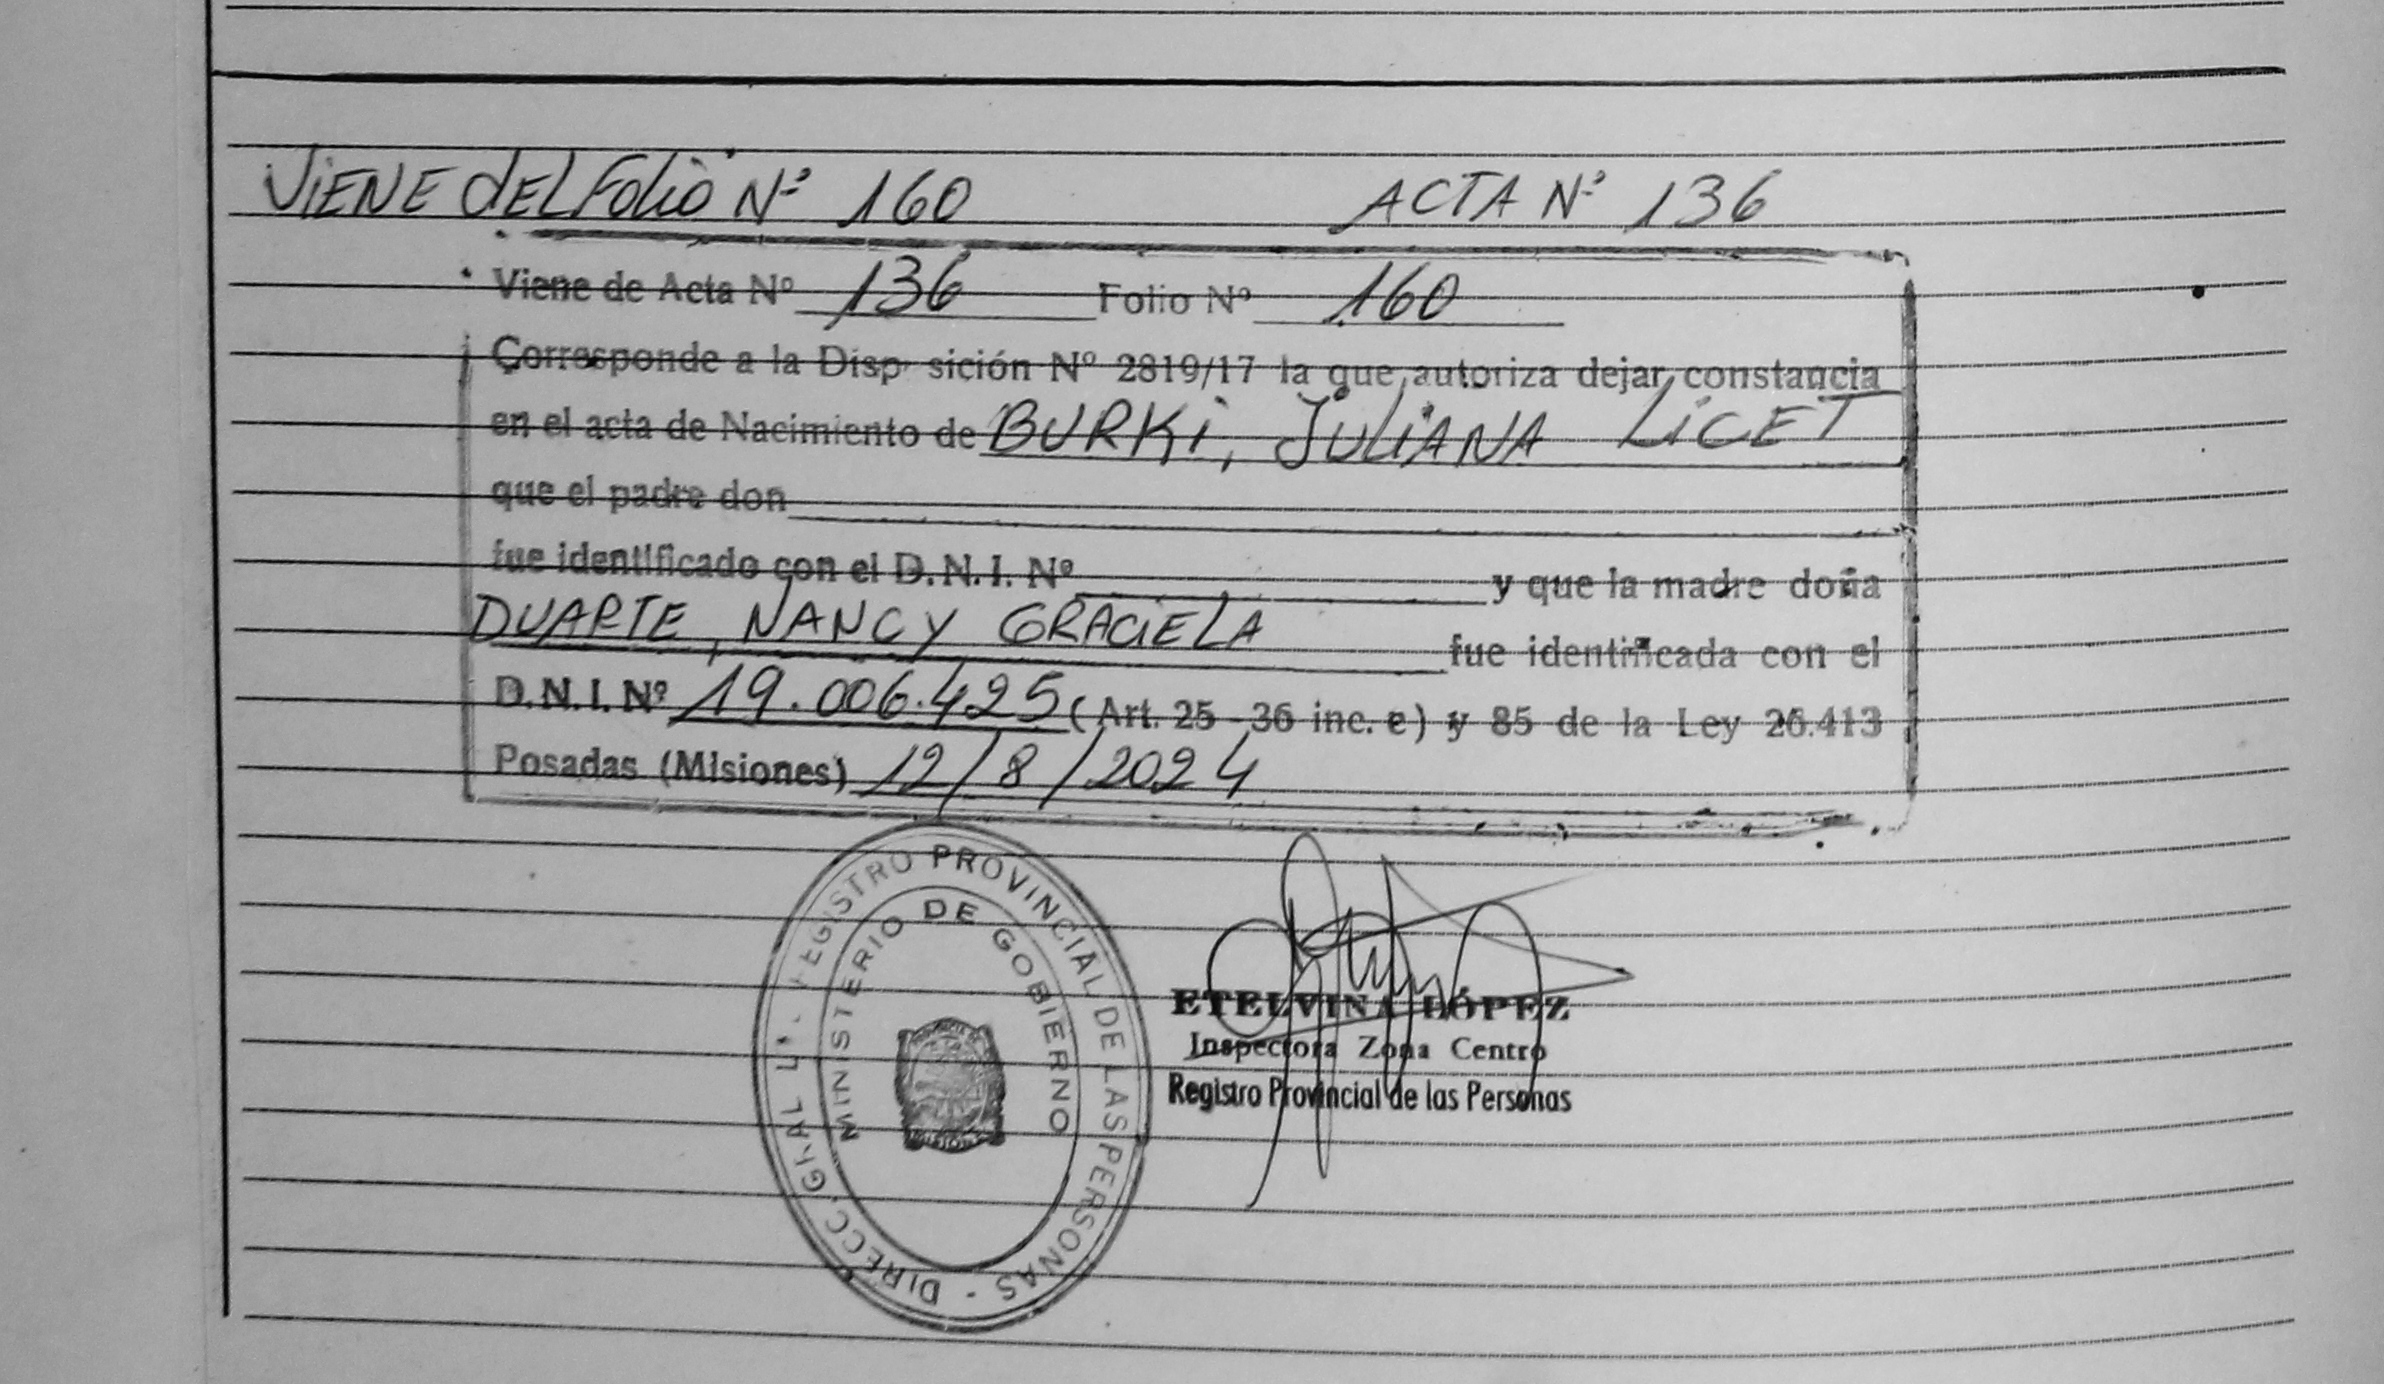 VIENE DEL FOLIO Nº 160 ACTA Nº 136
Viene de Acta Nº 136 Folio Nº 160
Corresponde a la Disp sición Nº 2819/17 la que autoriza dejar constancia
en el acta de Nacimiento de BURKI, JULIANA LICET
que el padre don
fue identificado con el D.N.I. Nº y que la madre doña
DUARTE, NANCY GRACIELA fue identificada con el
D.N.I. Nº 19.006.425 (Art. 25 - 36 inc. e) y 85 de la Ley 26.413
Posadas (Misiones) 12/8/2024
REGISTRO PROVINCIAL DE LAS PERSONAS - DIRECC. GRAL
MINISTERIO DE GOBIERNO
ETELVINA LÓPEZ
Inspectora Zona Centro
Registro Provincial de las Personas